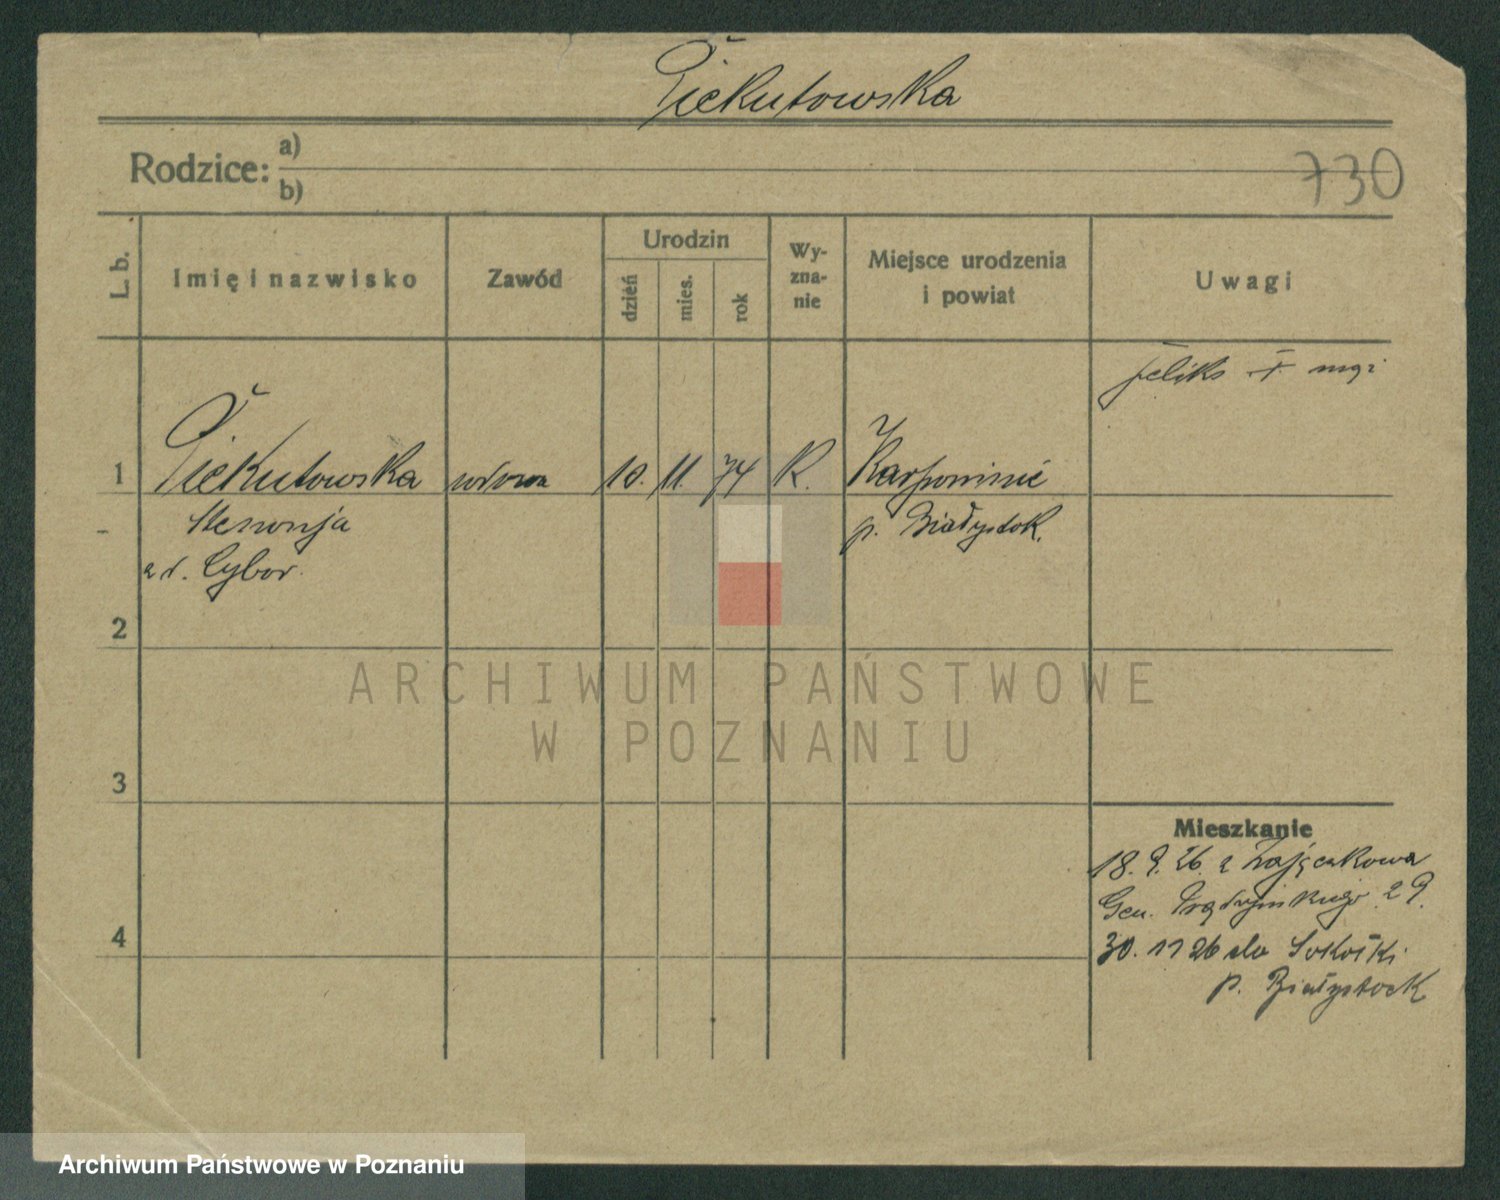 Piekutowska
Rodzice: a)
b)
730
L. b.
Imię i nazwisko
Zawód
Urodzin
dzień
mies.
rok
Wy-
zna-
nie
Miejsce urodzenia
i powiat
Uwagi
Feliks mąż
1
Piekutowska wdowa 10. 11. 74 R.
p. Białystok.
Cybor.
2
ARCHIWUM PAŃSTWOWE
W POZNANIU
3
Mieszkanie
18. 9. 26. z Zajączkowa
Gen. Prądzyńskiego 29.
4
30. 11 26 do Sokółki
p. Białystock
Archiwum Państwowe w Poznaniu